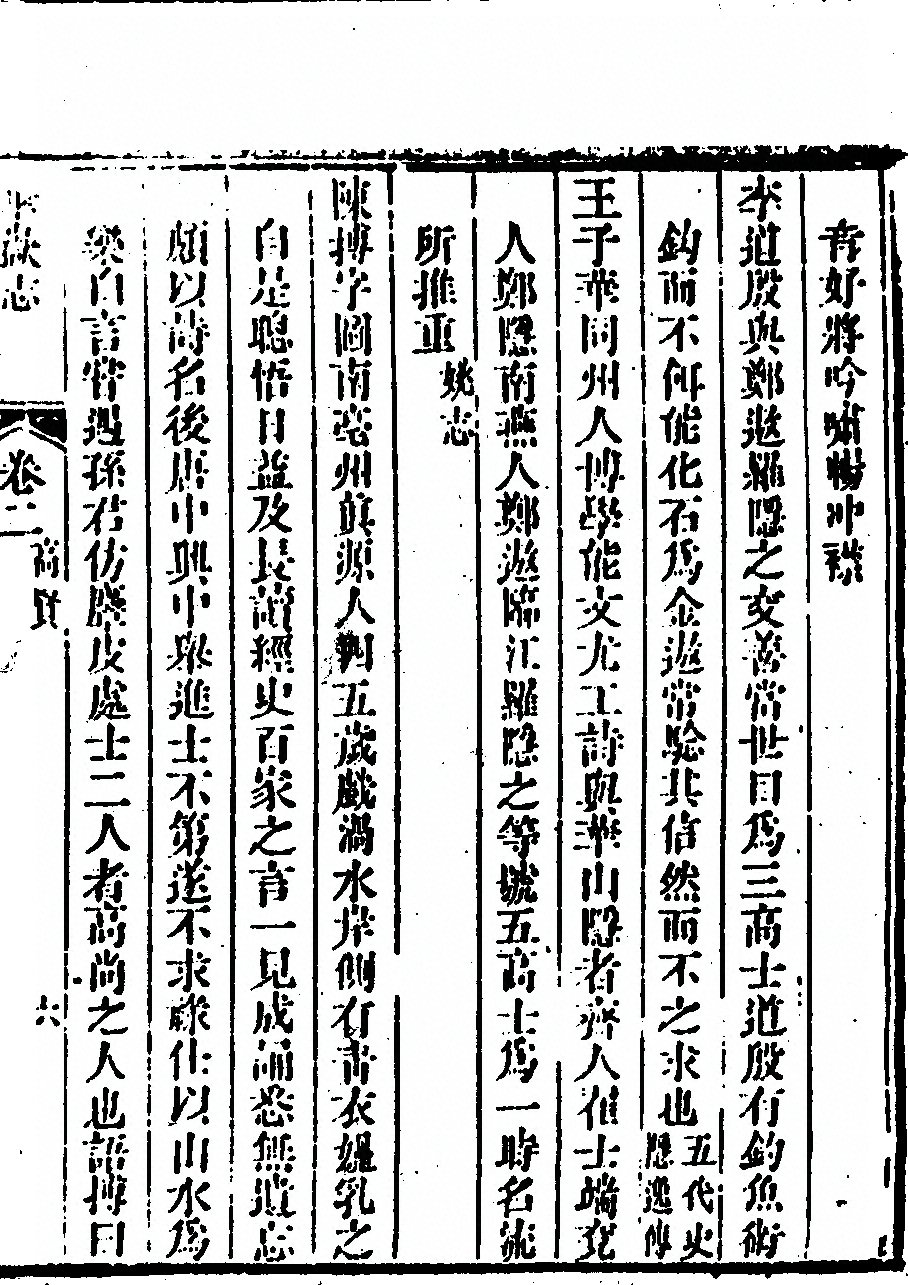 音好將吟嘯暢冲襟
李道殷與鄭遨羅隱之交善當世目爲三高士道殷有釣魚術
鈎而不餌能化石爲金遨常驗其信然而不之求也五代史隱逸傳
王子華同州人博學能文尤工詩與華山隱者齊人崔士端兗
人鄭隱南燕人鄭遨臨江羅隱之等號五高士爲一時名流
所推重姚志
陳摶字圖南亳州眞源人剃五歲戲渦水岸側有青衣媼乳之
自是聰悟日益及長讀經史百家之言一見成誦悉無遺忘
頗以詩名後唐中興中舉進士不第遂不求祿仕以山水爲
樂自言嘗遇孫君仿麞皮處士二人者高尚之人也語摶曰
嶽志 卷二 高賢 六